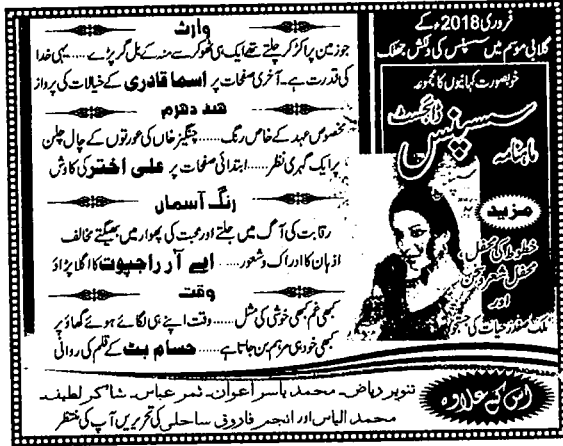 فروری 2018ء کے
گلابی موسم میں سسپنس کی دلکش جھلک
خوبصورت کہانیوں کا مجموعہ
سسپنس
ڈائجسٹ
ماہنامہ
مزید
خطوط کی محفل
محفل شعر و سخن
اور
ملک صفدر حیات کی جستجو
وارث
جو زمین پر اکڑ کر چلتے تھے ایک ہی ٹھوکر سے منہ کے بل گر پڑے..... یہی خدا
کی قدرت ہے۔ آخری صفحات پر اسما قادری کے خیالات کی پرواز
هند دھرم
مخصوص عہد کے خاص رنگ..... چنگیز خاں کی عورتوں کے چال چلن
پر ایک گہری نظر..... ابتدائی صفحات پر علی اختر کی کاوش
رنگ آسماں
رقابت کی آگ میں جلتے اور محبت کی پھوار میں بھیگتے مخالف
اذہان کا ادراک و شعور..... ایے آر راجپوت کا اگلا پڑاؤ
وقت
کبھی غم کبھی خوشی کی مثل..... وقت اپنے ہی لگائے ہوئے گھاؤ پر
کبھی خود ہی مرہم بن جاتا ہے..... حسام بٹ کے قلم کی روانی
اس کے علاوہ
تنویر ریاض۔ محمد یاسر اعوان۔ ثمر عباس۔ شاکر لطیف۔
محمد الیاس اور انجم فاروقی ساحلی کی تحریریں آپ کی منتظر